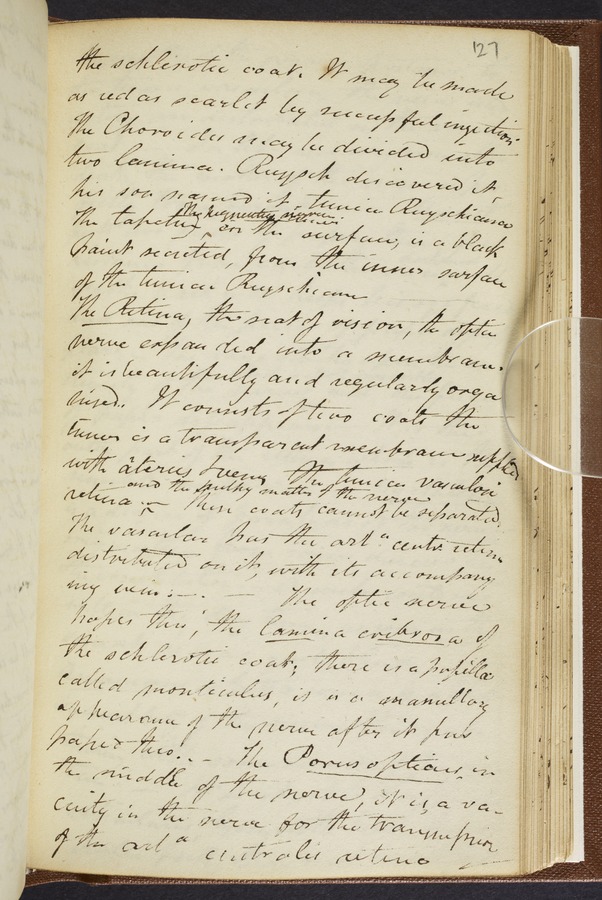 127
the schlerotic coat. It may be made
as red as scarlet by successful injection.
The Choroides may be divided into
two lamina. Ruysch discovered it
his son named it tunica Ruyschiana
The tapetum, on the surface, is a black
paint secreted, from the inner surface
of the tunica Ruyschiana
The Retina, the seat of vision, the optic
nerve expanded into a membrane.
it is beautifully and regularly orga
nised. It consists of two coats the
inner is a transparent membrane supplied
with arteries & veins the tunica vasculosa
and the pulpy matter of the nerve
retina — these coats cannot be separated.
The vascular has the art.a centr. retin
distributed on it, with its accompany
ing vein. — — The optic nerve
passes thro', the Lamina cribrosa of
the schlerotic coat, there is a papilla
called monticulus, it is a mamillary
appearance of the nerve after it has
passed thro'. — The Porus opticus, in
the middle of the nerve, it is, a va-
cuity in the nerve for the transmission
of the art a centralis retina